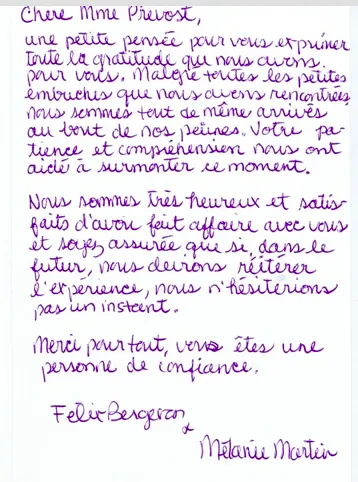 Chère Mme Prévost,
une petite pensée pour vous exprimer
toute la gratitude que nous avons
pour vous. Malgré toutes les petites
embûches que nous avons rencontrées,
nous sommes tout de même arrivés
au bout de nos peines. Votre pa-
tience et compréhension nous ont
aidé à surmonter ce moment.
Nous sommes très heureux et satis-
faits d'avoir fait affaire avec vous
et soyez assurée que si, dans le
futur, nous devrons réitérer
l'expérience, nous n'hésiterions
pas un instant.
Merci pour tout, vous êtes une
personne de confiance.
Felix Bergeron
&
Mélanie Martin